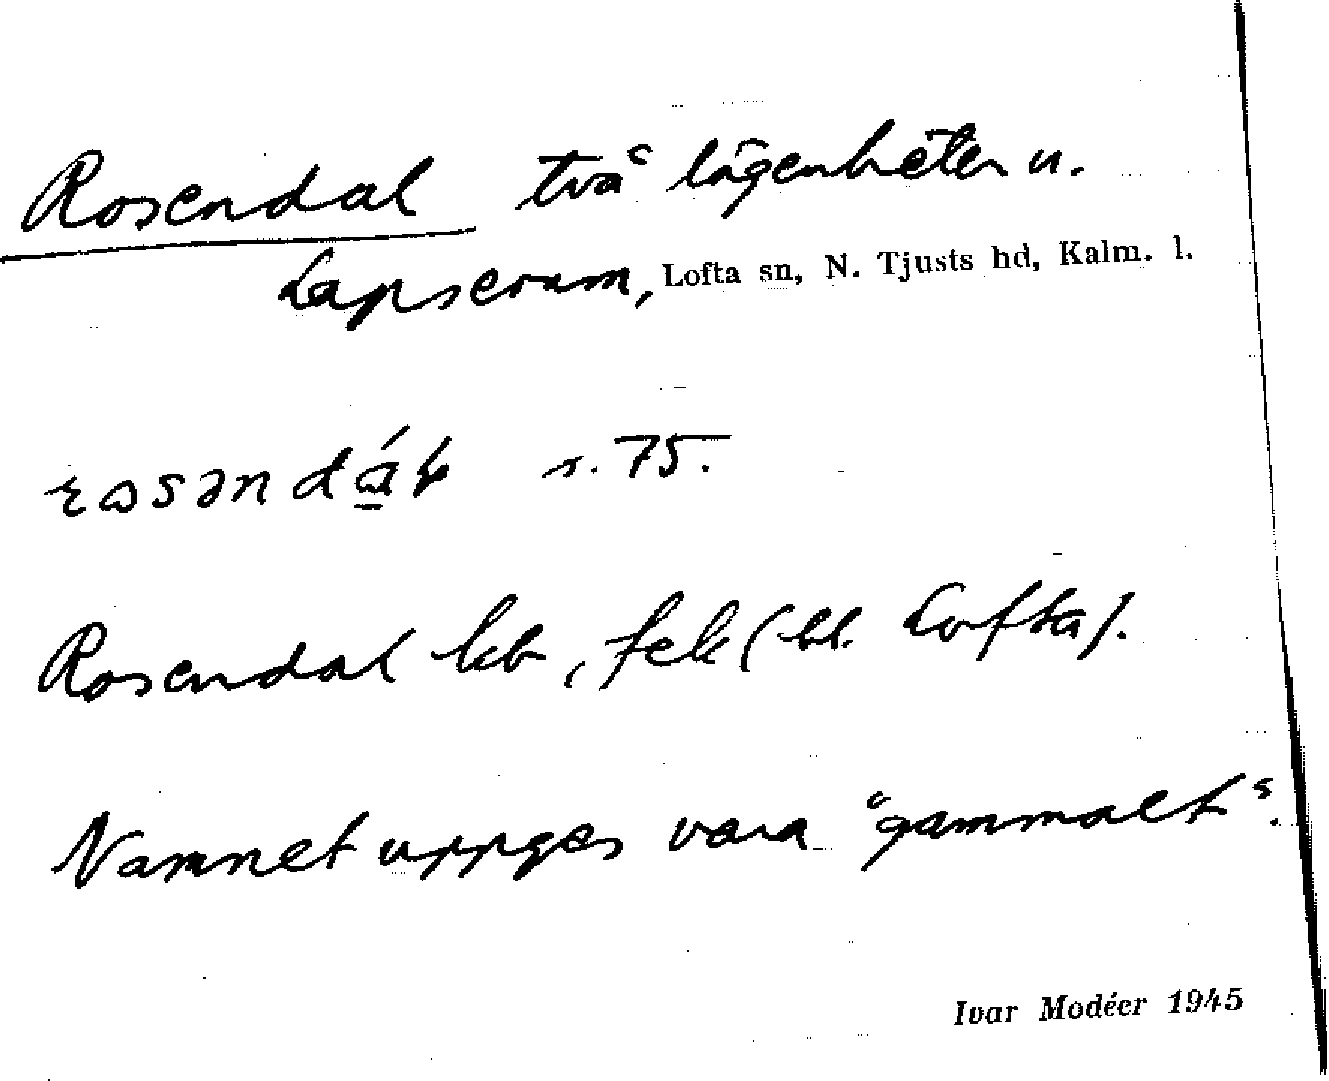 Rosendal två lägenheter u.
Lapserum, Lofta sn, N. Tjusts hd, Kalm. l.
s. 75.
Rosendal kb, fek (bl. Lofta).
Namnet uppges vara "gammalt".
Ivar Modéer 1945